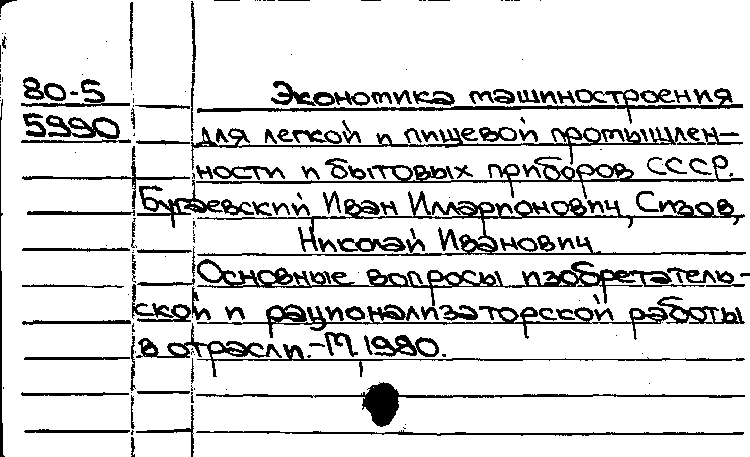 80-5 Экономика машиностроения
5990 для легкой и пищевой промышлен-
ности и бытовых приборов СССР.
Бугаевский Иван Илларионович, Сизов,
Николай Иванович.
Основные вопросы изобретатель-
ской и рационализаторской работы
в отрасли.-М, 1980.